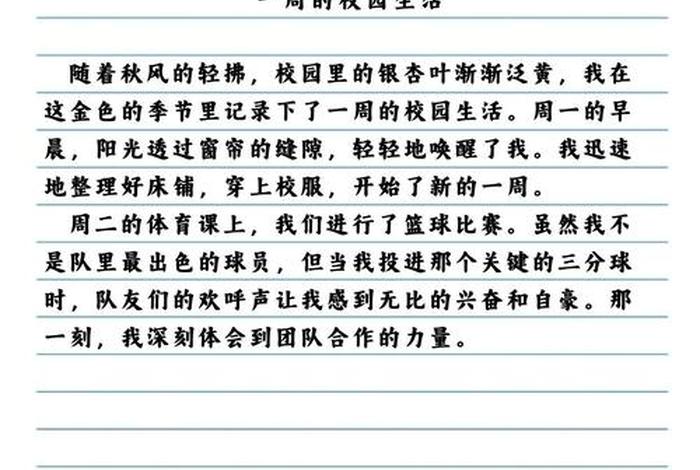 一周的校园生活
随着秋风的轻拂，校园里的银杏叶渐渐泛黄，我在
这金色的季节里记录下了一周的校园生活。周一的早
晨，阳光透过窗帘的缝隙，轻轻地唤醒了我。我迅速
地整理好床铺，穿上校服，开始了新的一周。
周二的体育课上，我们进行了篮球比赛。虽然我不
是队里最出色的球员，但当我投进那个关键的三分球
时，队友们的欢呼声让我感到无比的兴奋和自豪。那
一刻，我深刻体会到团队合作的力量。